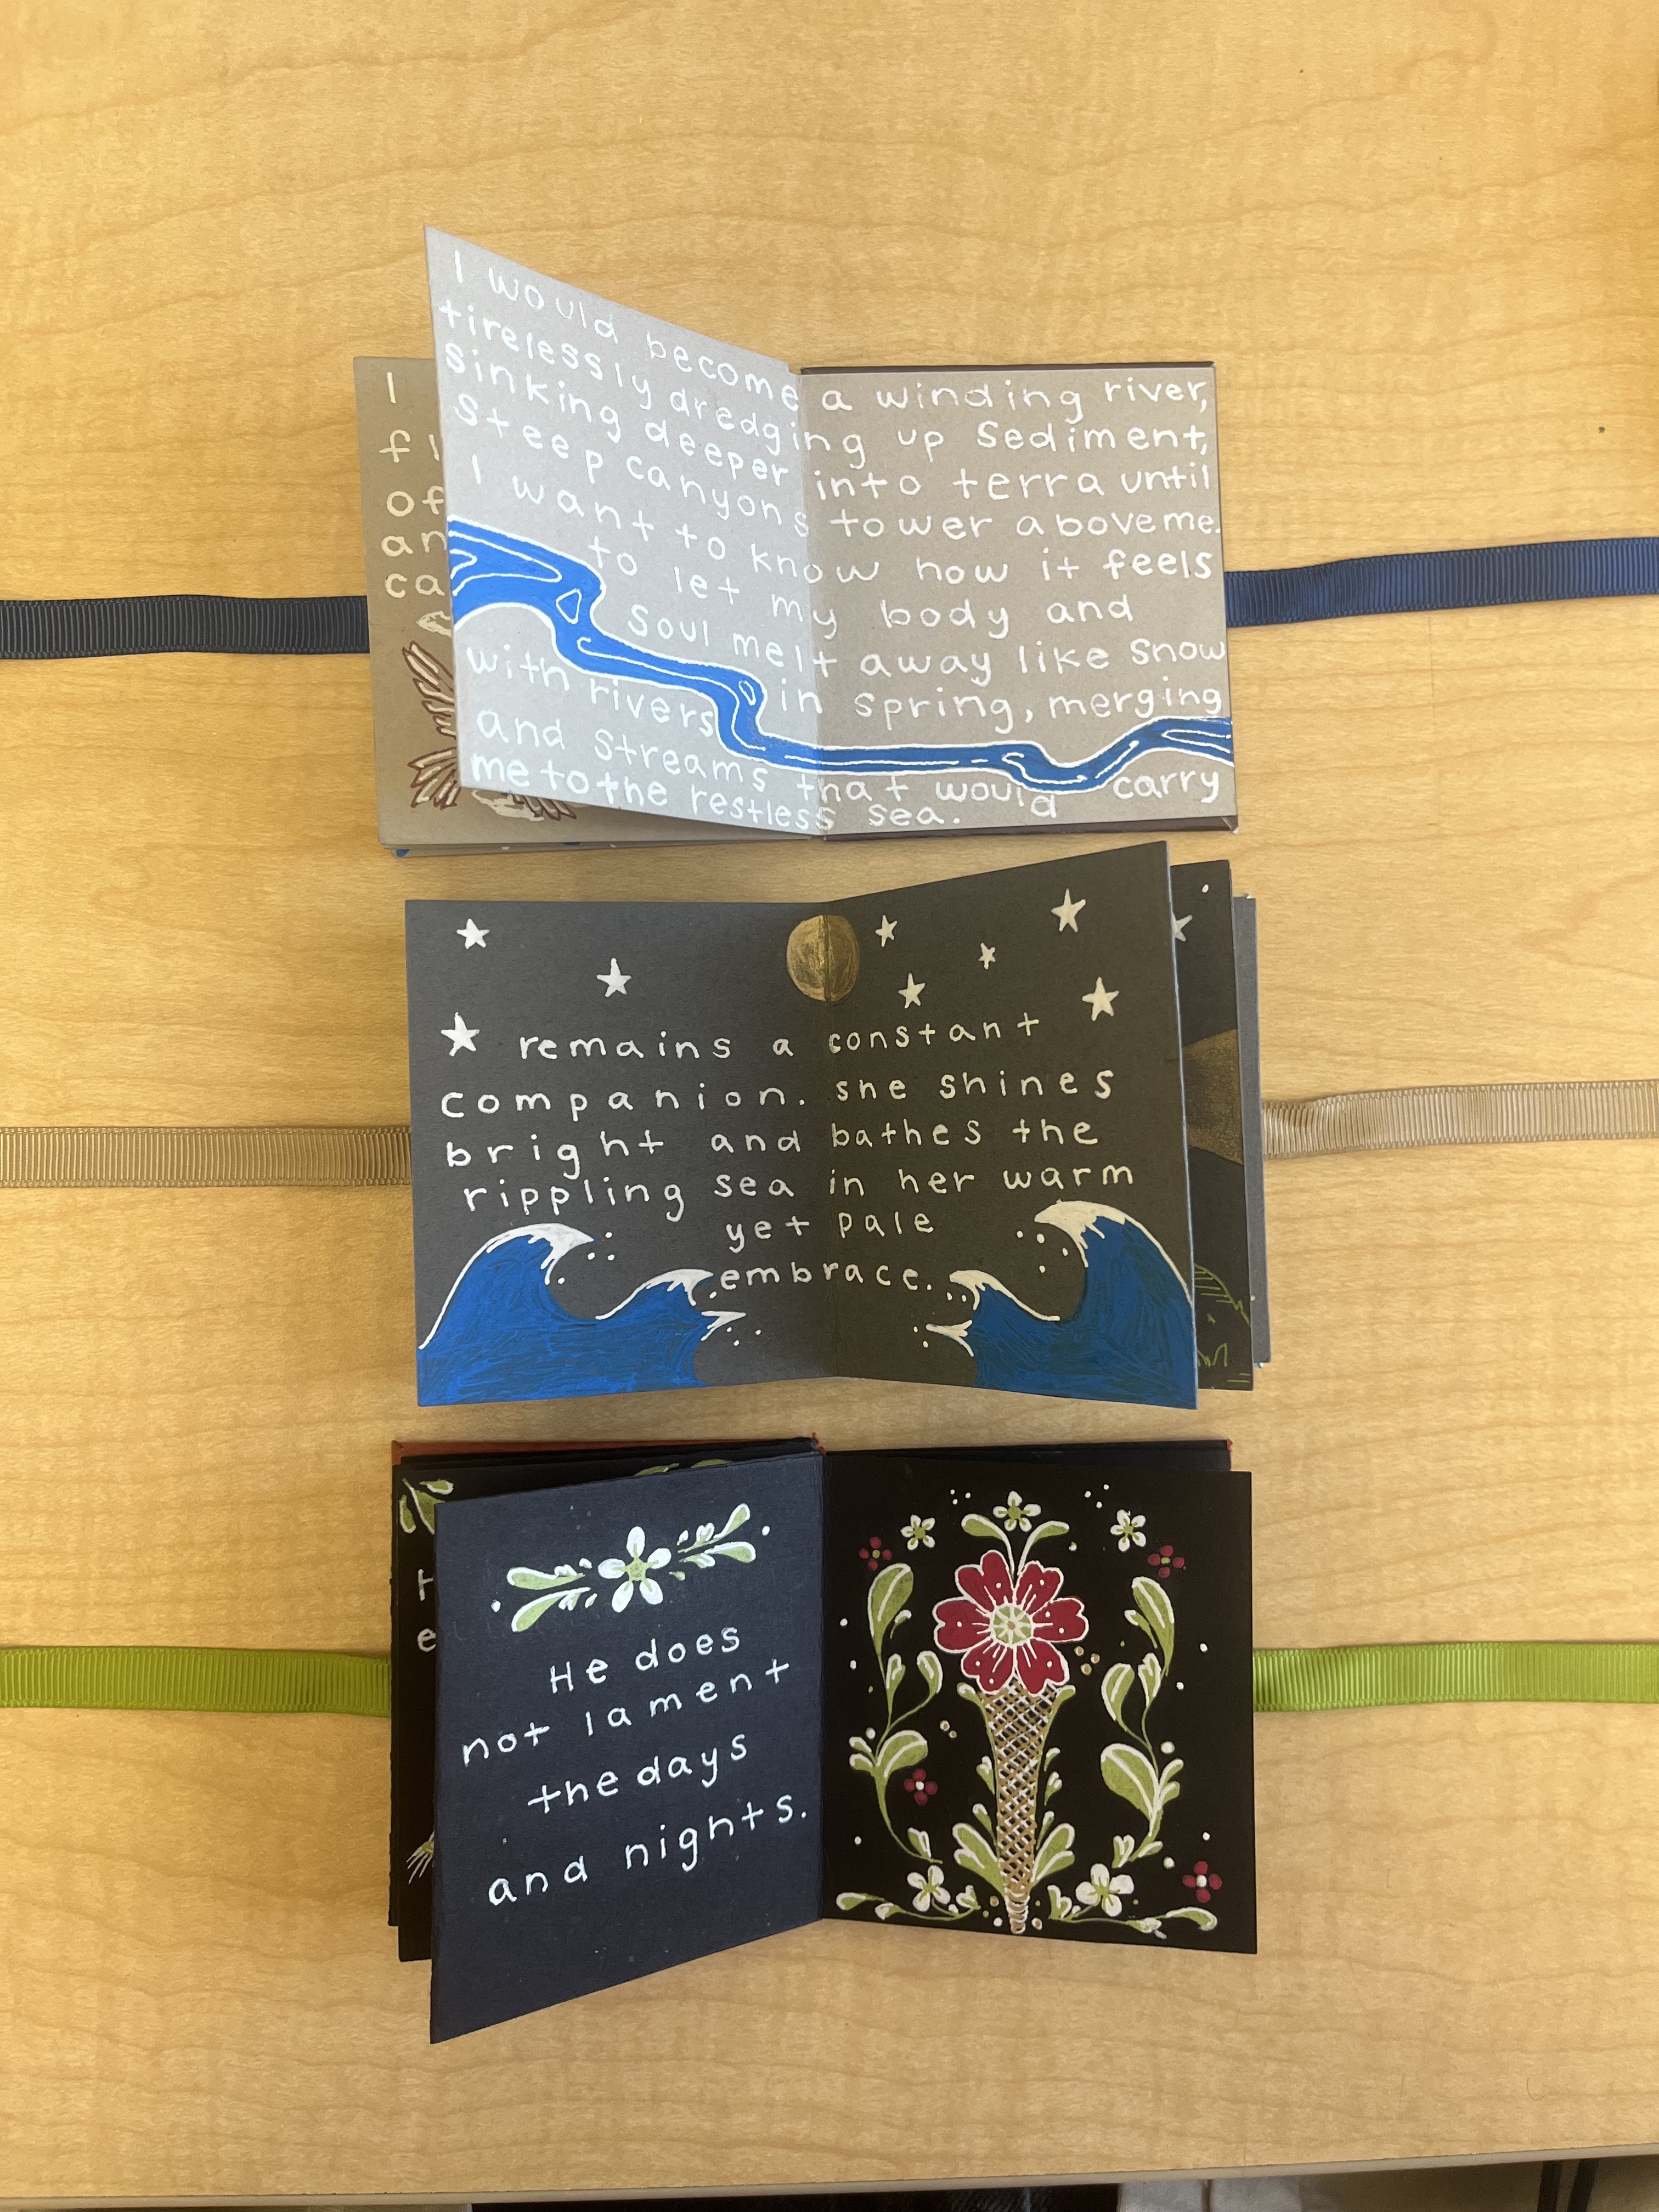 I
fl
of
an
ca
I would become a winding river,
tirelessly dredging up sediment,
sinking deeper into terra until
steep canyons tower above me.
I want to know how it feels
to let my body and
soul melt away like snow
in spring, merging
with rivers
and streams that would carry
me to the restless sea.
remains a constant
companion. she shines
bright and bathes the
rippling sea in her warm
yet pale
embrace.
He does
not lament
the days
and nights.